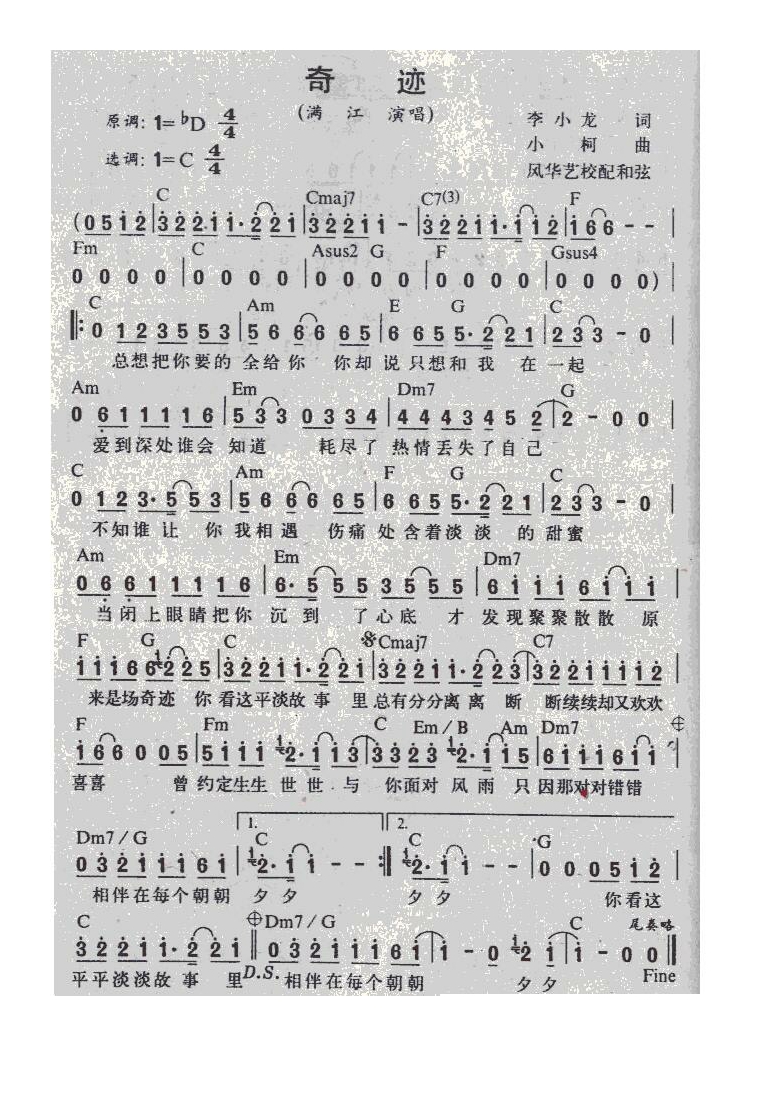 奇 迹
(满 江 演唱)
原调: 1=♭D 4/4
李小龙 词
小 柯 曲
选调: 1=C 4/4
风华艺校配和弦
C Cmaj7 C7(3) F
(0 5 1 2 | 3 2 2 1 1· 2 2 1 | 3 2 2 1 1 - | 3 2 2 1 1· 1 1 2 | 1 6 6 - - |
Fm C Asus2 G F Gsus4
0 0 0 0 | 0 0 0 0 | 0 0 0 0 | 0 0 0 0 | 0 0 0 0 ) |
C Am E G C
‖: 0 1 2 3 5 5 3 | 5 6 6 6 6 5 | 6 6 5 5· 2 2 1 | 2 3 3 - 0 |
总想把你要的 全给你 你却 说只想和我 在一起
Am Em Dm7 G
0 6 1 1 1 1 6 | 5 3 3 0 3 3 4 | 4 4 4 3 4 5 2 | 2 - 0 0 |
爱到深处谁会 知道 耗尽了 热情丢失了自己
C Am F G C
0 1 2 3· 5 5 3 | 5 6 6 6 6 5 | 6 6 5 5· 2 2 1 | 2 3 3 - 0 |
不知谁让 你我相遇 伤痛处含着淡淡 的甜蜜
Am Em Dm7
0 6 6 1 1 1 1 6 | 6· 5 5 5 3 5 5 5 | 6 1 1 1 6 1 1 1 |
当闭上眼睛把你 沉到 了心底 才 发现聚聚散散 原
F G C 𝄋Cmaj7 C7
1 1 1 6 6 2 2 5 | 3 2 2 1 1· 2 2 1 | 3 2 2 1 1· 2 2 3 | 3 2 2 1 1 1 1 2 |
来是场奇迹 你看这平淡故事 里总有分分离离 断 断续续却又欢欢
F Fm C Em/B Am Dm7 𝄌
1 6 6 0 0 5 | 5 1 1 1 2· 1 1 3 | 3 3 2 3 2· 1 1 5 | 6 1 1 1 6 1 1 |
喜喜 曾 约定生生 世世 与 你面对 风雨 只 因那对对错错
1. 2.
Dm7/G C C G
0 3 2 1 1 1 6 1 | 2· 1 1 - - :‖ 2· 1 1 - - | 0 0 0 5 1 2 |
相伴在每个朝朝 夕夕 夕夕 你看这
C 𝄌Dm7/G C 尾奏略
3 2 2 1 1· 2 2 1 ‖ 0 3 2 1 1 1 6 1 | 1 - 0 2 1 | 1 - 0 0 ‖
平平淡淡故事 里 D.S. 相伴在每个朝朝 夕夕 Fine